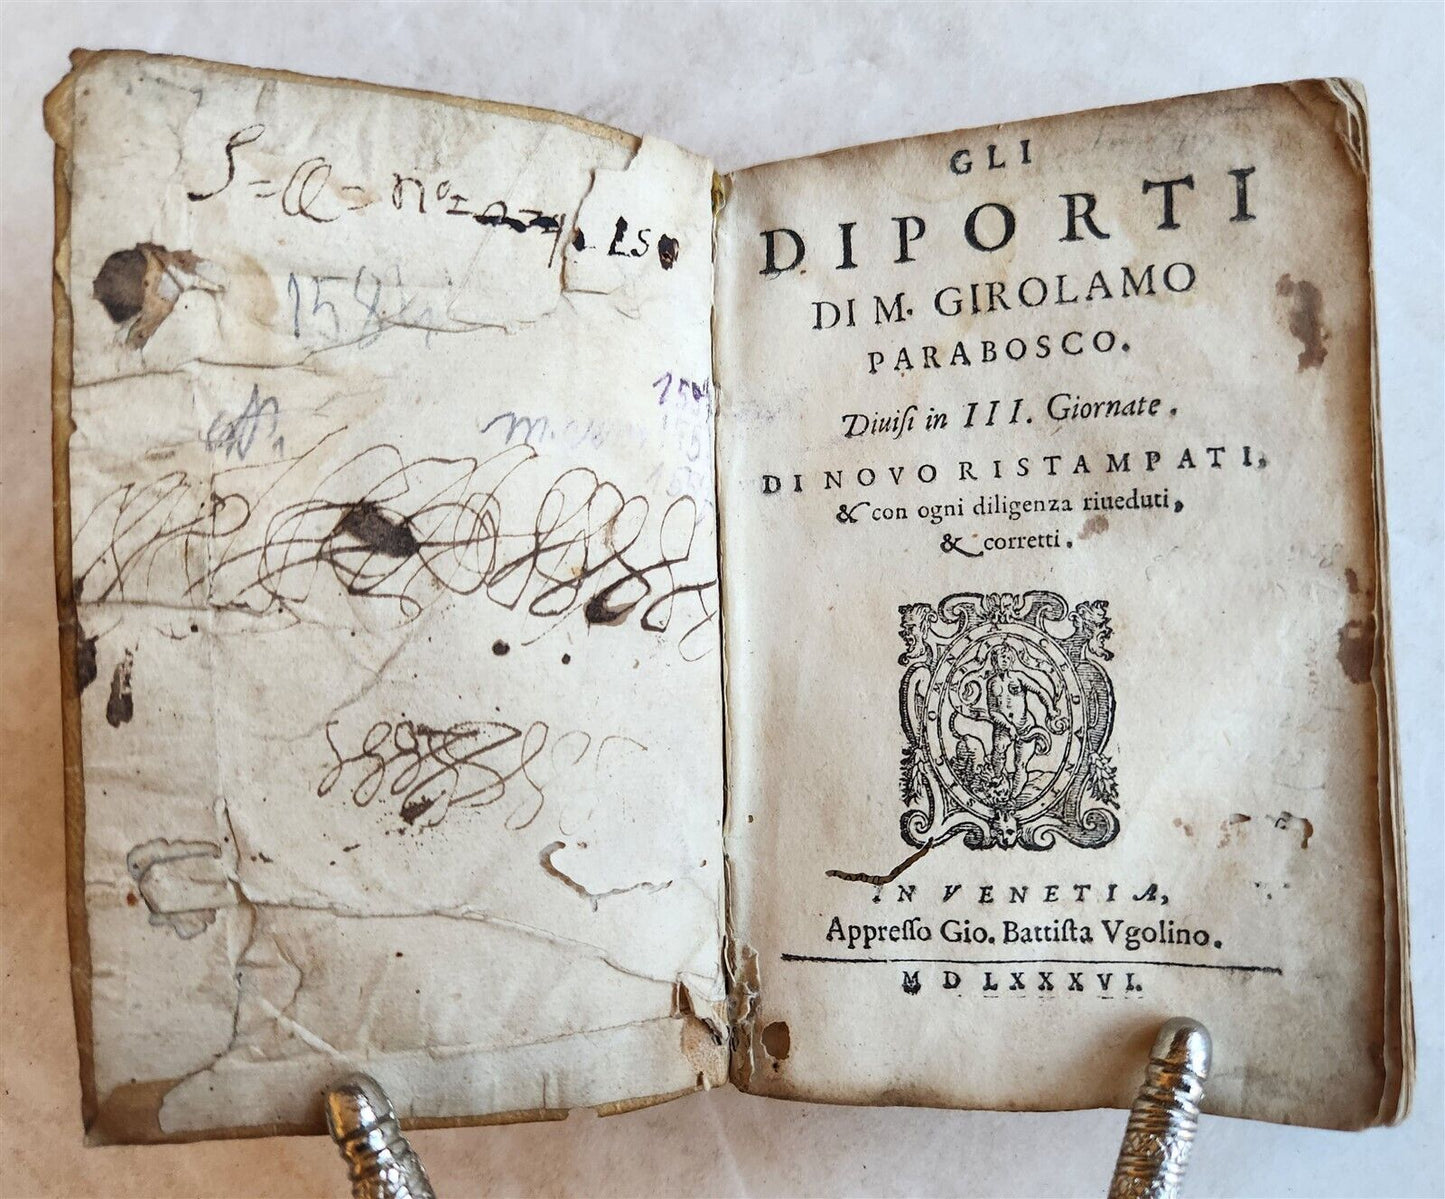 S = Q = nº =
1584
GLI
DIPORTI
DI M. GIROLAMO
PARABOSCO.
Diuiſi in III. Giornate.
DI NOVO RISTAMPATI,
& con ogni diligenza riueduti,
& corretti.
IN VENETIA,
Appreſſo Gio. Battiſta Vgolino.
MDLXXXVI.